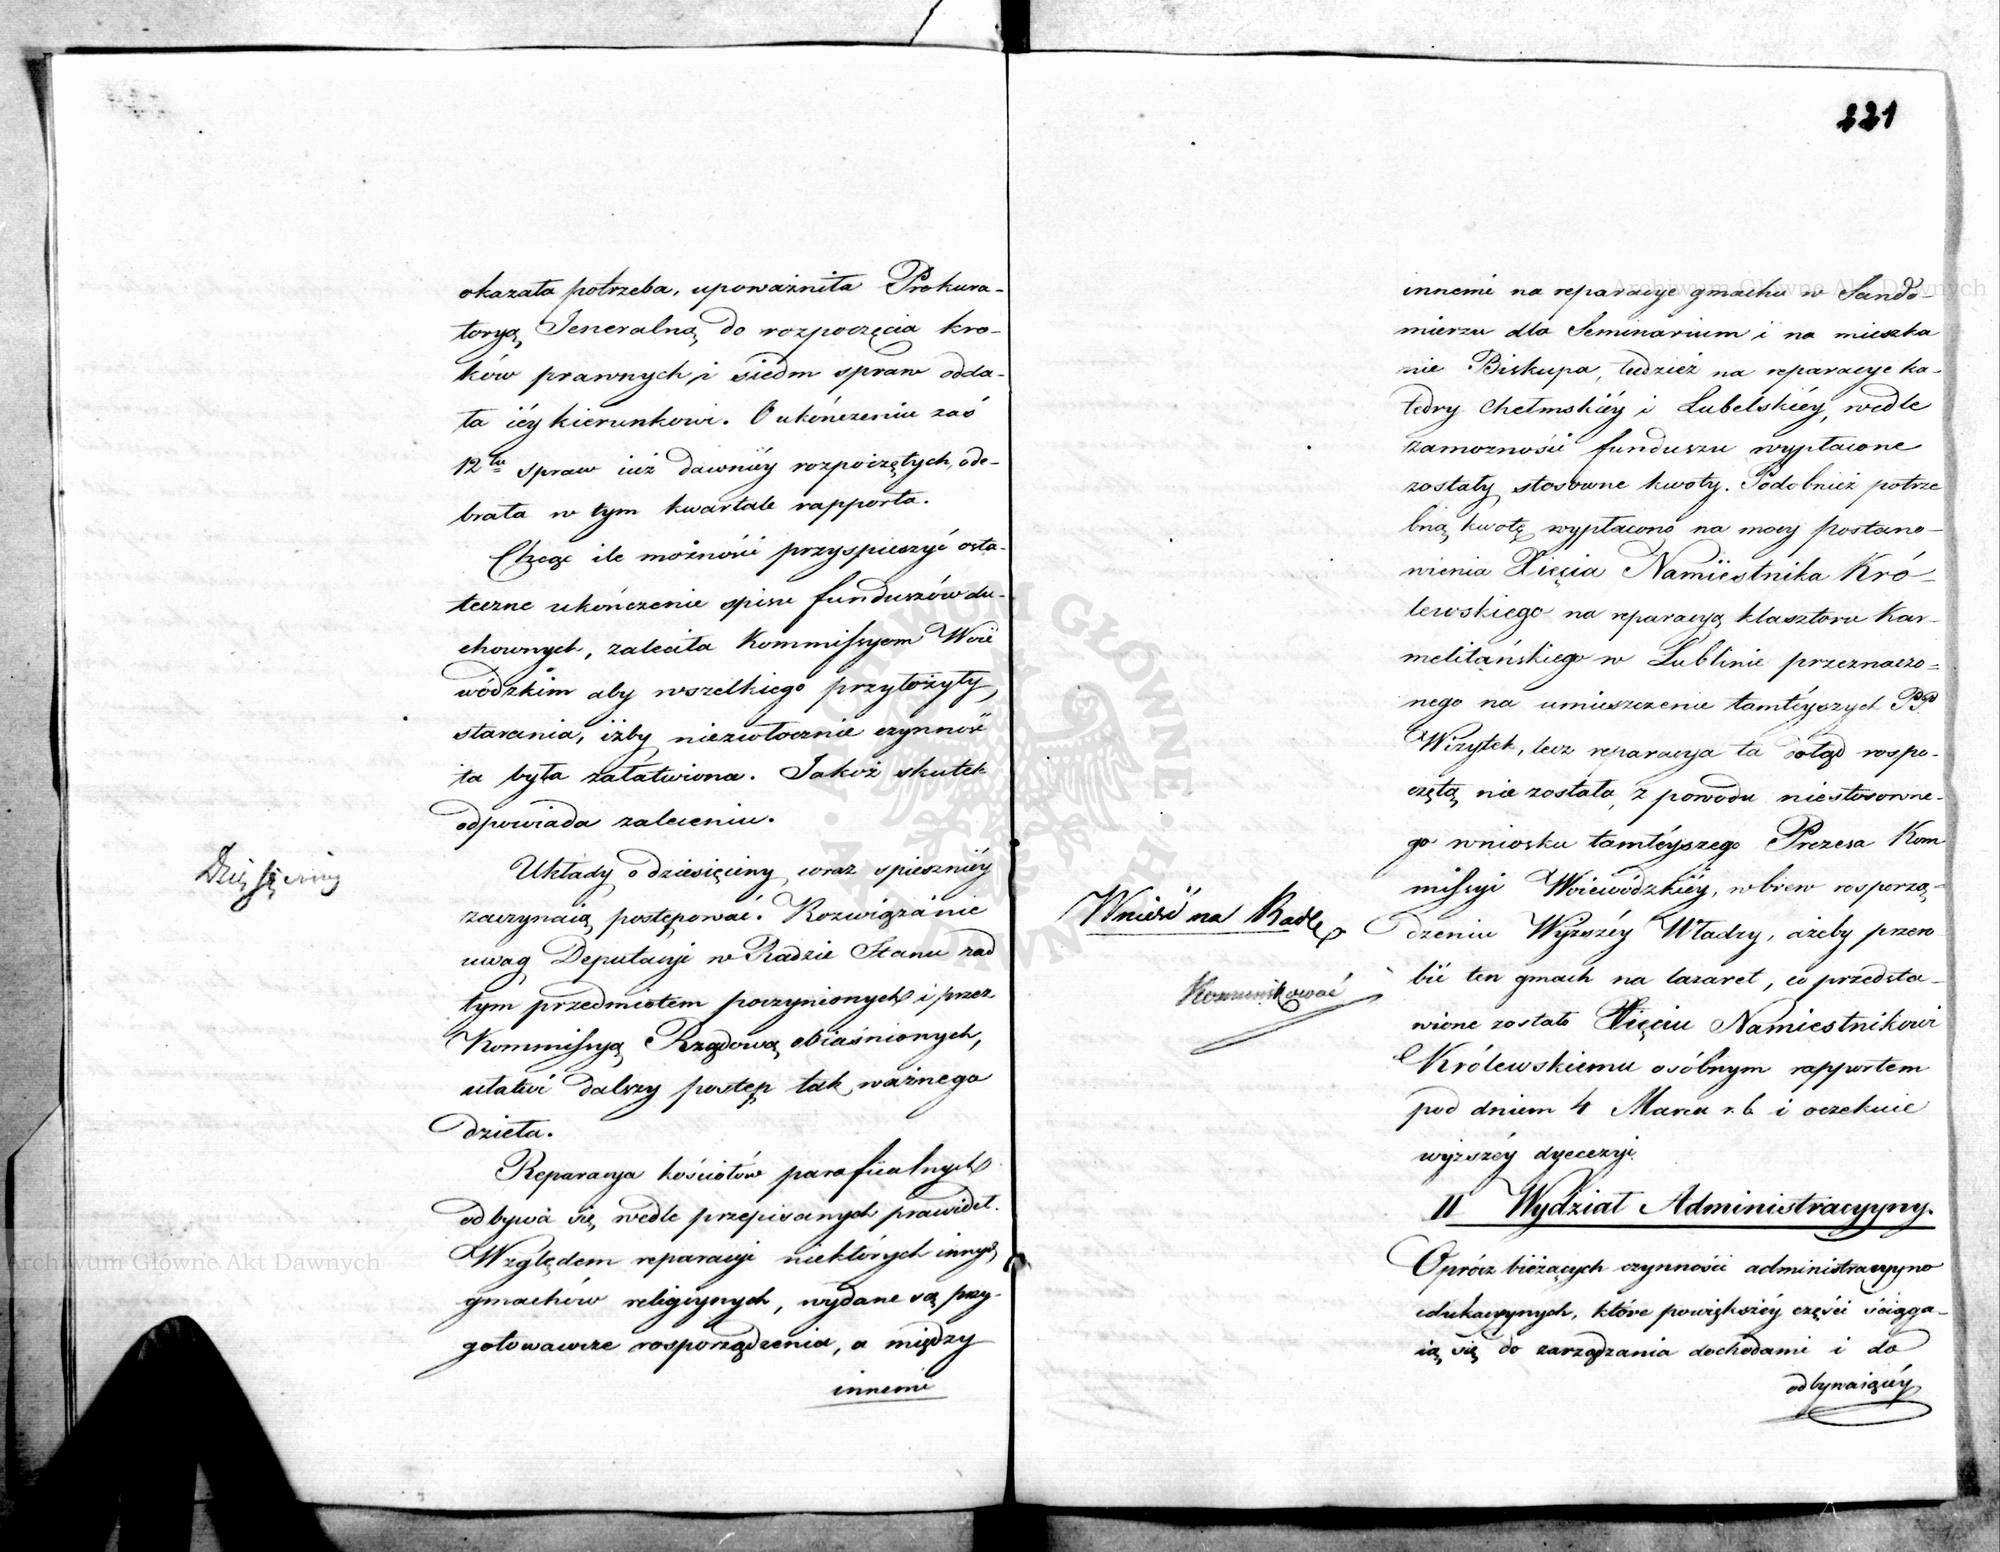 okazała potrzeba, upoważniła Prokura-
toryą Jeneralną do rozpoczęcia kro-
ków prawnych, i siedm spraw odda-
ła iéy kierunkowi. O ukończeniu zaś
12tu spraw iuż dawniéy rozpoczętych, ode-
brała w tym kwartale rapporta.
Chcąc ile możności przyspieszyć osta-
teczne ukończenie spisu funduszów du-
chownych, zaleciła Kommissyom Woie
wódzkim aby wszelkiego przyłożyły
starania, iżby niezwłocznie czynność
ta była załatwiona. Jakoż skutek
odpowiada zaleceniu.
Dziesięciny
Układy o dziesięciny coraz spieszniéy
zaczynaią postępować. Rozwiązanie
uwag Deputacyi w Radzie Stanu nad
tym przedmiotem poczynionych i przez
Kommissyą Rządową obiaśnionych,
ułatwi dalszy postęp tak ważnego
dzieła.
Reparacya kościołów parafiialnych
odbywa się wedle przepisanych prawideł.
Względem reparacyi niektórych innych
gmachów religiynych, wydane są przy-
gotowawcze rosporządzenia, a między
innemi
221
innemi na reparacye gmachu w Sando-
mierzu dla Seminarium i na mieszka
nie Biskupa, tudzież na reparacye ka-
tedry Chełmskiéy i Lubelskiéy, wedle
zamożności funduszu wypłacone
zostały stosowne kwoty. Podobnież potrze
bną kwotę wypłacono na mocy postano-
wienia Xięcia Namiestnika Kró-
lewskiego na reparacyą klasztoru Kar-
melitańskiego w Lublinie przeznaczo-
nego na umieszczenie tamtéyszych PP
Wizytek, lecz reparacya ta dotąd rospo-
czętą nie została, z powodu niestosowne-
go wniosku tamtéyszego Prezesa Kom
missyi Woiewódzkiéy, wbrew rosporzą-
Wnieść na Radę
dzeniu Wyższéy Władzy, ażeby przero
bić ten gmach na lazaret, co przedsta-
Komunikować
wione zostało Xięciu Namiestnikowi
Królewskiemu osóbnym rapportem
pod dniem 4 Marca r. b. i oczekuie
wyższéy dyecezyi
II Wydział Administracyyny.
Oprócz bieżących czynności administracyyno
edukacyynych, które powiększéy części ściąga-
ią się do zarządzania dochodami i do
odbywaiącéy